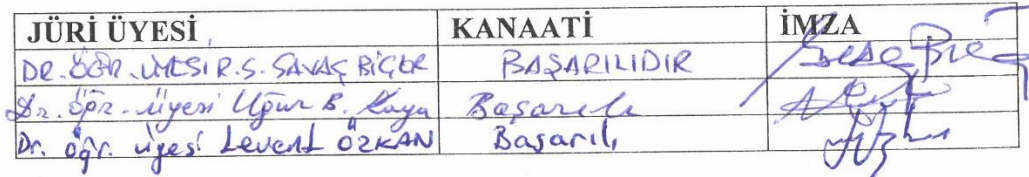 JÜRİ ÜYESİ KANAATİ İMZA
DR. ÖĞR. ÜYESİ R.S. SAVAŞ BİÇER BAŞARILIDIR
Dr. Öğr. Üyesi Uğur B. Kaya Başarılı
Dr. öğr. üyesi Levent ÖZKAN Başarılı